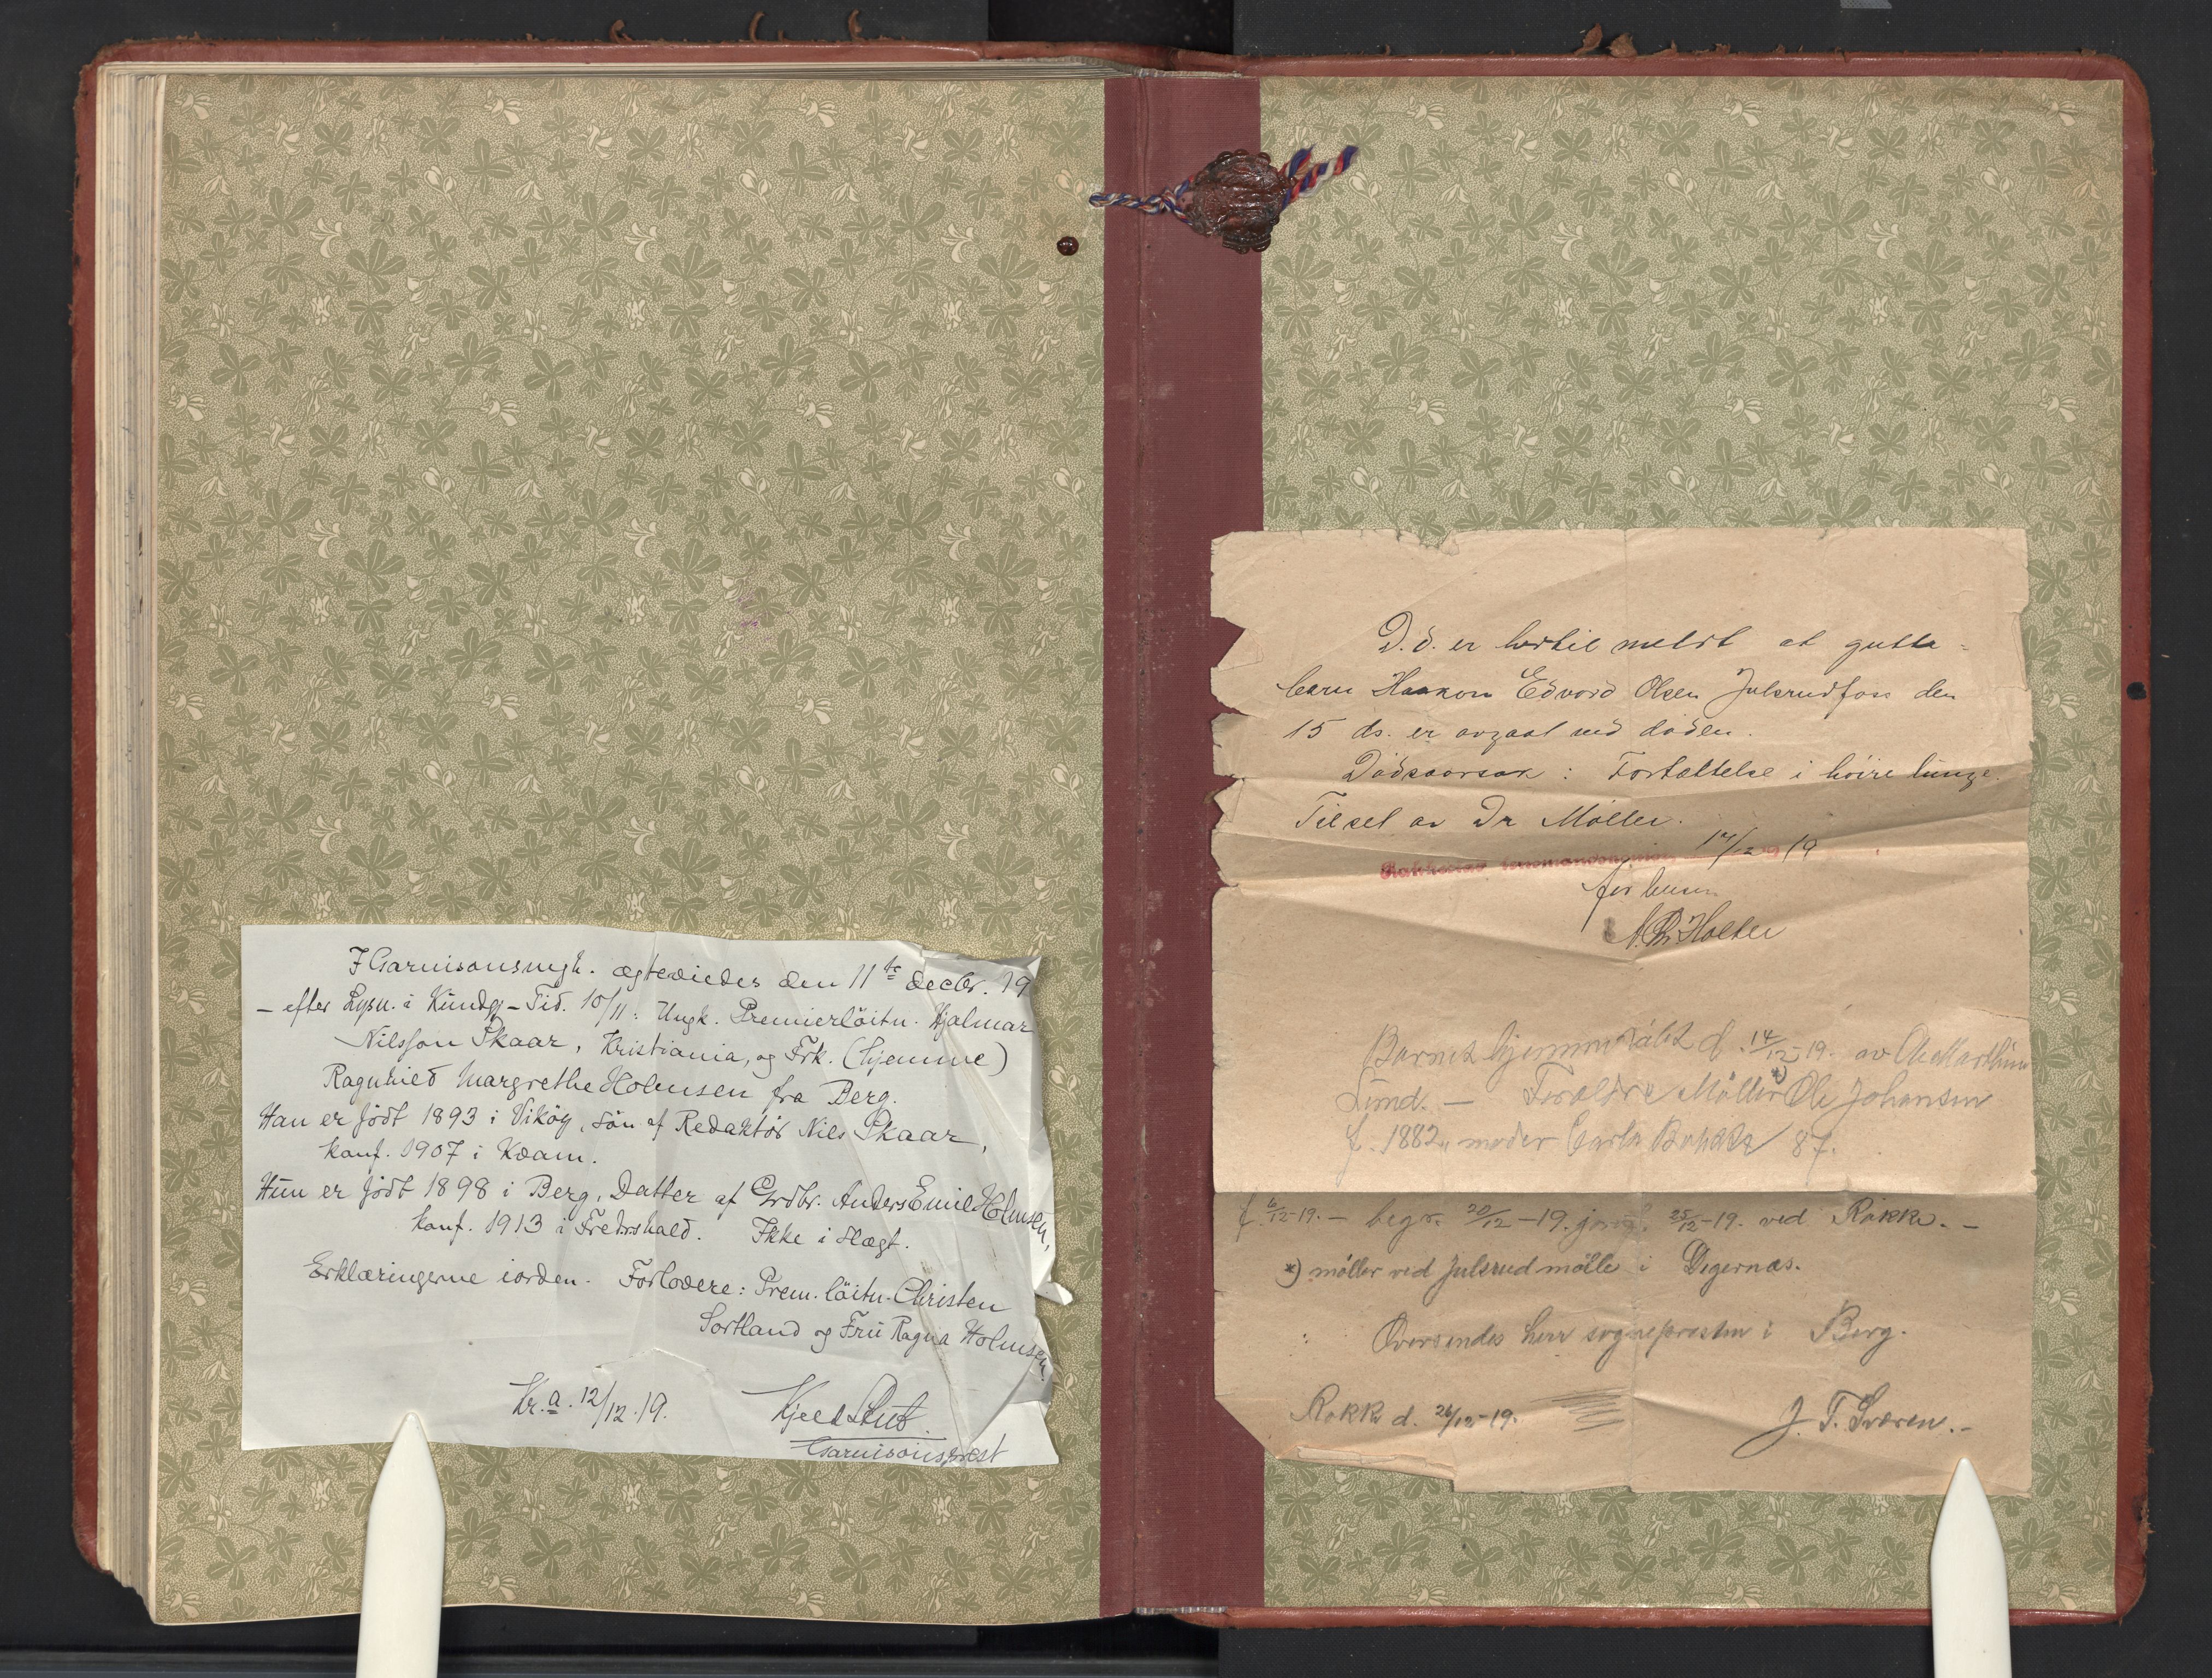 I Garnisonsmgh. ægteviedes den 11te decbr. 19
– efter Lysn. i Kundg-Tid. 10/11: Ungk. Premierlöitn. Hjalmar
Nilsson Skaar, Kristiania, og Frk. (hjemme)
Ragnhild Margrethe Holmsen fra Berg.
Han er födt 1893 i Vikög, Sön af Redaktör Nils Skaar,
konf. 1907 i Kvam.
Hun er födt 1898 i Berg, Datter af Grdbr. Anders Emil Holmsen,
konf. 1913 i Fredrshald. Ikke i Slægt.
Erklæringerne iorden. Forlovere: Prem. löitn. Christen
Sortland og Fru Ragna Holmsen.
Kr.a. 12/12.19. Kjeld Stub.
Garnisonsprest
D.d. er hertil meldt at gutte-
barn Haakon Edvard Olsen Julsrudfoss den
15 ds. er avgaat ved döden.
Dödsaarsak: Fortættelse i höire lunge.
Tilset av Dr Möller.
17/12 19
N. Chr. Holter
Barnet hjemmedöbt d. 14/12-19. av
Lund. — Foreldre Möller *) Ole Johansen
f. 1882, moder 87.
f. 6/12-19. – begr. 20/12-19. 25/12-19. ved Rokke. –
*) möller ved Julsrud mölle i Degernes.
Oversendes herr sognepresten i Berg.
Rokke d. 26/12-19. J. T. Sværen.-